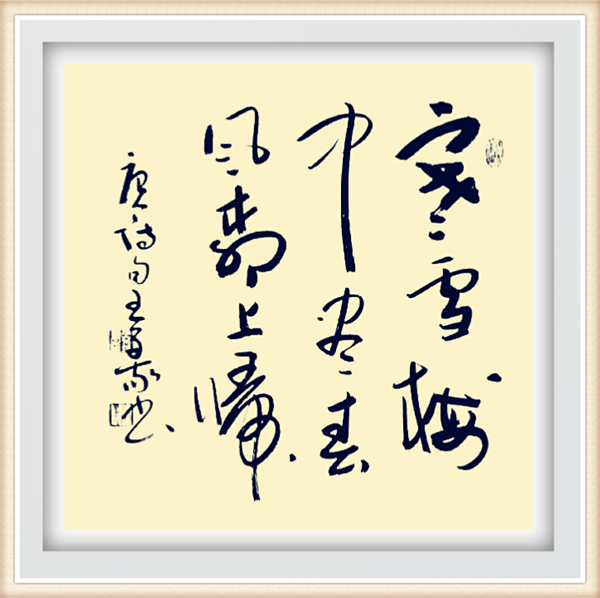 寒雪梅
中尽春
风柳上归
唐诗句王